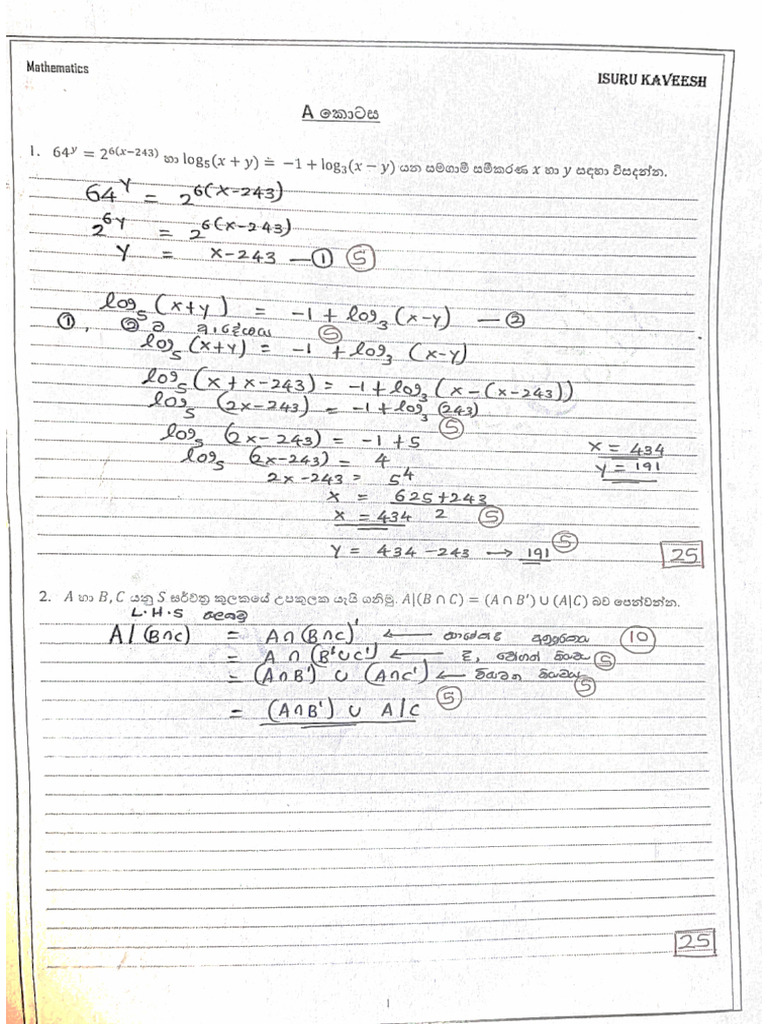 Mathematics
ISURU KAVEESH
A කොටස
1. 64^y = 2^{6(x−243)} හා log₅(x + y) = −1 + log₃(x − y) යන සමගාමී සමීකරණ x හා y සඳහා විසඳන්න.
64^y = 2^{6(x-243)}
2^{6y} = 2^{6(x-243)}
y = x-243 — ① ⑤
log₅(x+y) = -1 + log₃(x-y) — ②
①, ② ට ආදේශය ⑤
log₅(x+y) = -1 + log₃ (x-y)
log₅(x+x-243) = -1+log₃(x-(x-243))
log₅ (2x-243) = -1+log₃ (243)
⑤
log₅ (2x-243) = -1+5
x = 434
log₅ (2x-243) = 4
y = 191
2x-243 = 5⁴
x = 625+243
2
x = 434 ⑤
y = 434 -243 → 191 ⑤
25
2. A හා B, C යනු S සර්වත්‍ර කුලකයේ උපකුලක යැයි ගනිමු. A|(B ∩ C) = (A ∩ B′) ∪ (A|C) බව පෙන්වන්න.
L.H.S
A/(B∩C) = A∩(B∩C)' ← ⑩
= A ∩ (B'∪C') ← ද, නියමය ⑤
= (A∩B') ∪ (A∩C') ← නියමය ⑤
= (A∩B') ∪ A/C ⑤
25
1